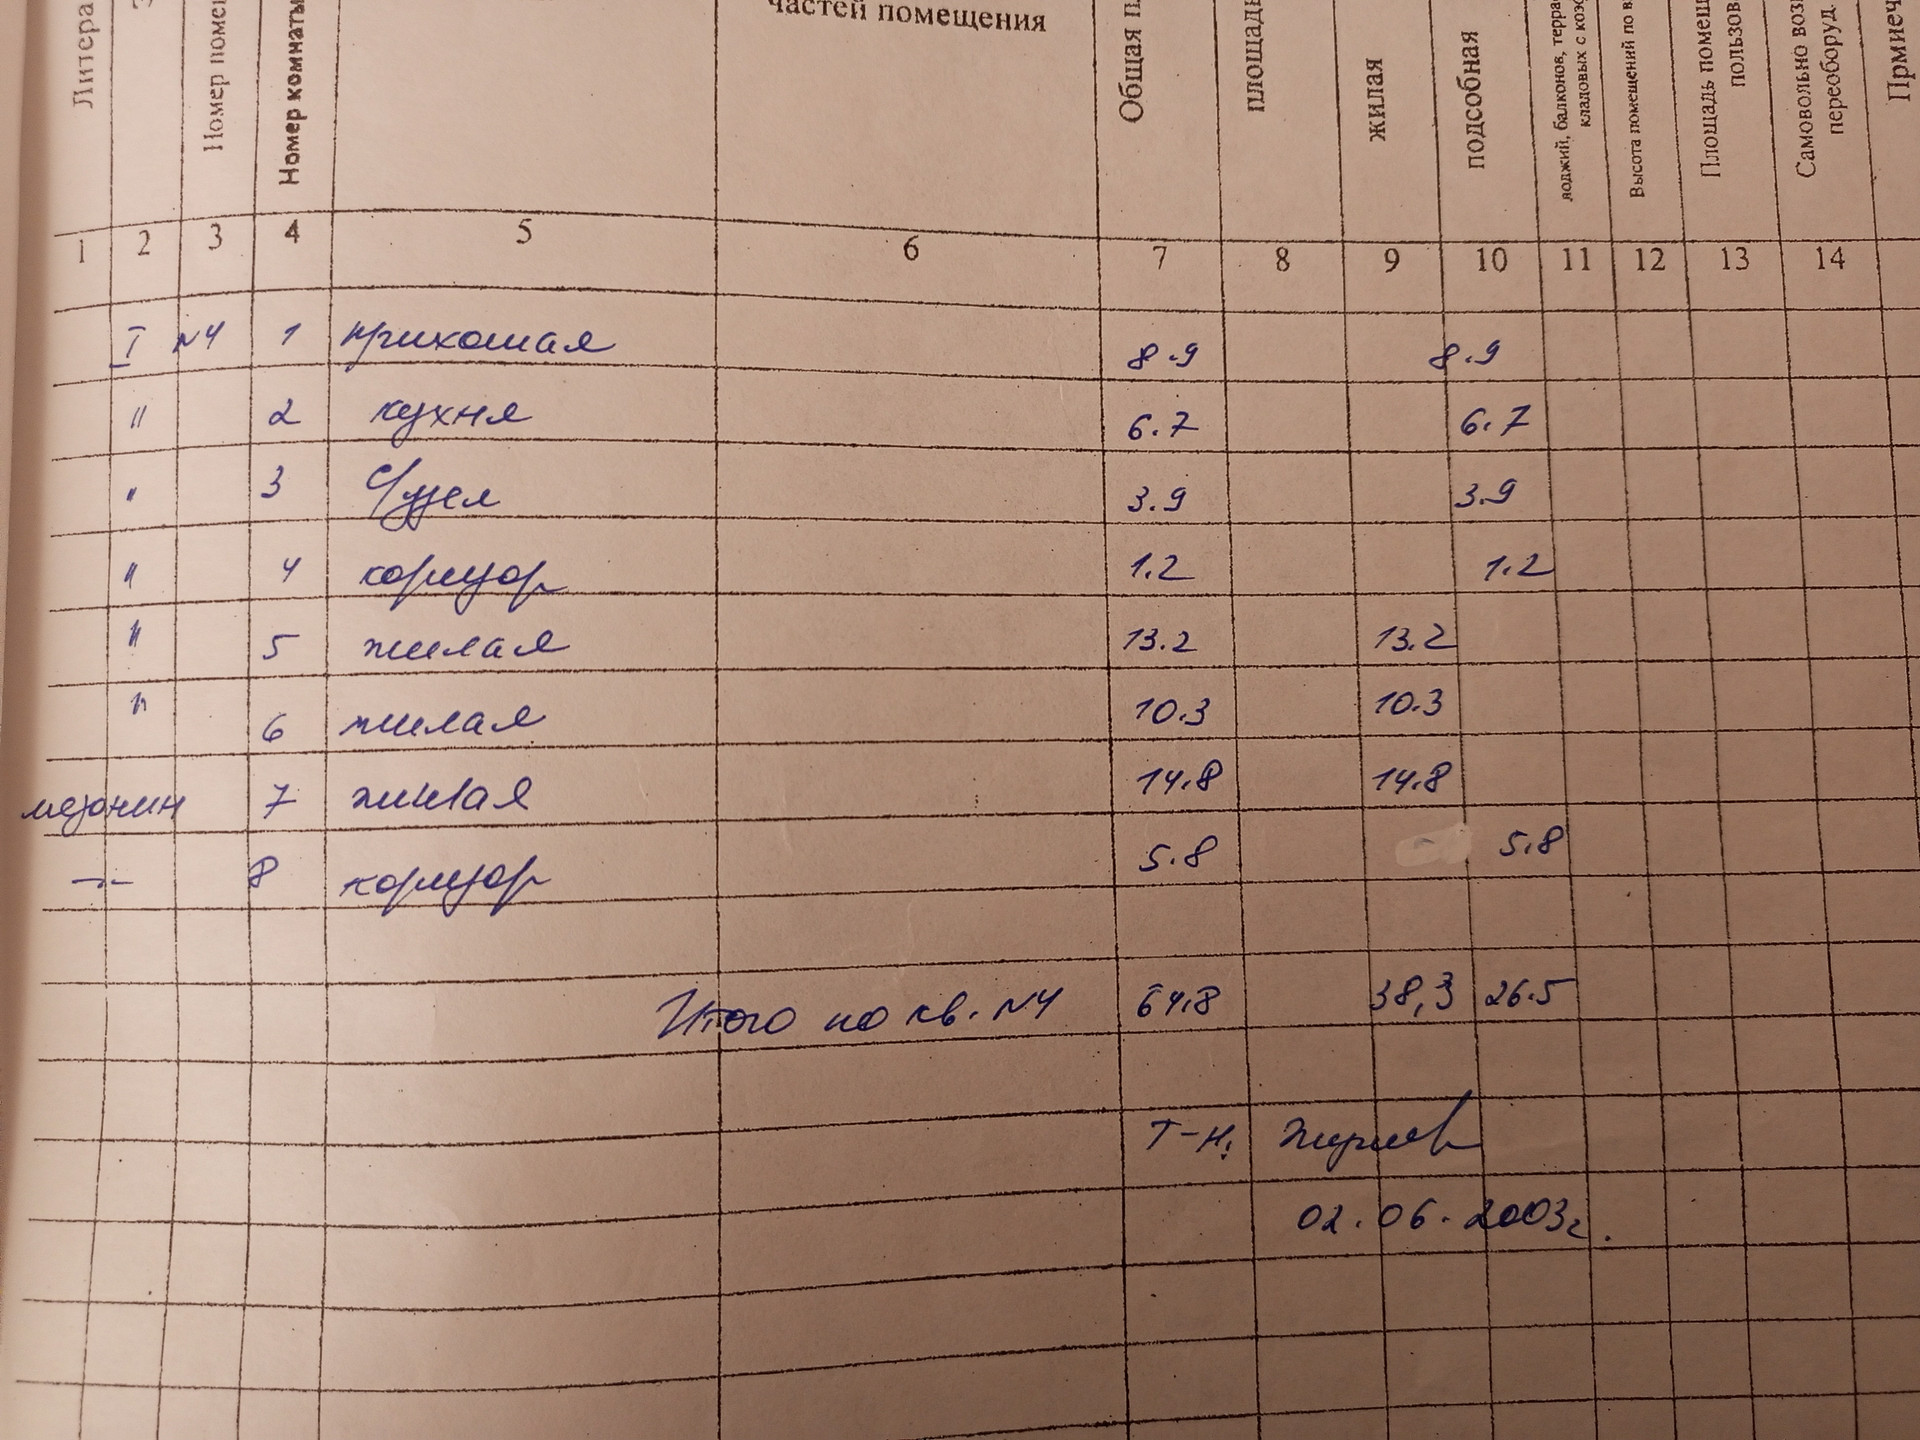 Литера
Номер помещ
Номер комнаты
частей помещения
Общая пл
площадь
жилая
подсобная
лоджий, балконов, терра
кладовых с коэф
Высота помещений по в
Площадь помещ
пользов
Самовольно воз
переоборуд.
Прмиеч
1 2 3 4 5 6 7 8 9 10 11 12 13 14
I №4 1 прихожая 8.9 8.9
" 2 кухня 6.7 6.7
" 3 с/узел 3.9 3.9
" 4 коридор 1.2 1.2
" 5 жилая 13.2 13.2
" 6 жилая 10.3 10.3
мезонин 7 жилая 14.8 14.8
-"- 8 коридор 5.8 5.8
Итого по кв. №4 64.8 38,3 26.5
Т-н:
02.06.2003г.